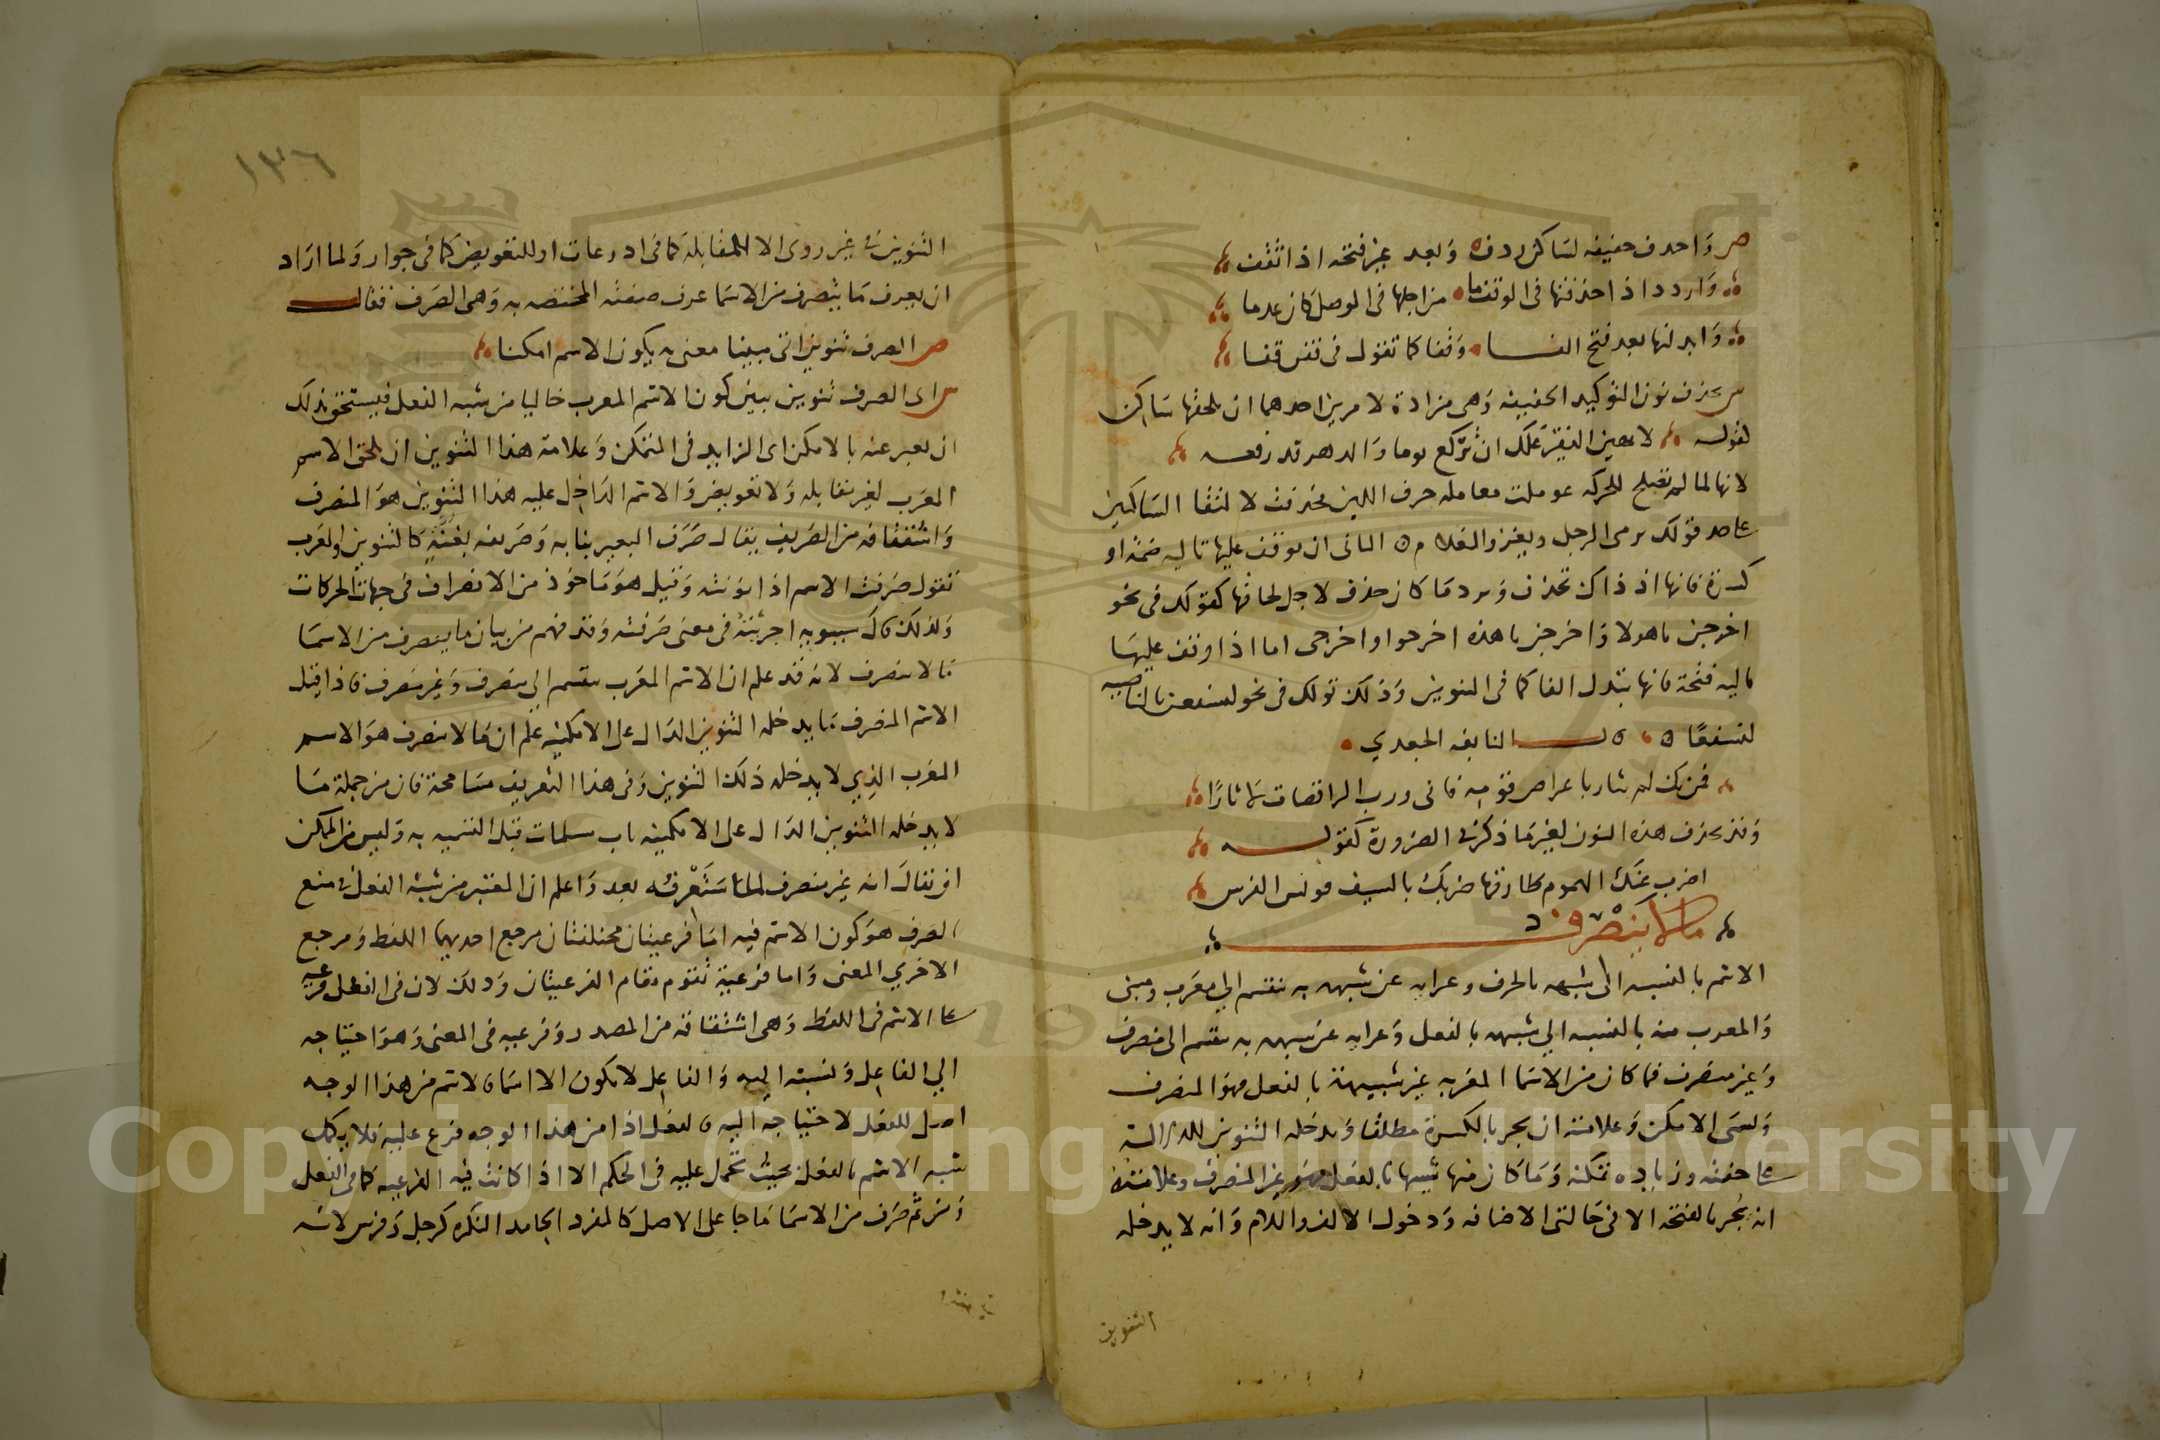 ص واحذف خفيفه لساكن ردف وبعد غير فتحه اذا تقف
واردد اذا حذفتها في الوقف ما من اجلها في الوصل كان عدما
وابدلنها بعد فتح الفا وقفا كما تقول في قفن قفا
س يحذف نون التوكيد الخفيفه وهي مرادة لامرين احدهما ان يلحقها ساكن
لقوله لا تهين الفقير علك ان تركع يوما والدهر قد رفعه
لانها لما لم تصلح للحركه عوملت معاملة حرف اللين فحذفت لالتقا الساكنين
على حد قولك يرمي الرجل ويغزو الغلام ه الثاني ان يوقف عليها تاليه ضمة او
كسرة فانها اذ ذاك تحذف ويرد ما كان حذف لاجل لحاقها كقولك في نحو
اخرجن ياهولا واخرجن يا هذه اخرجوا واخرجي اما اذا وقف عليها
تاليه فتحة فانها تبدل الفا كما في التنوين وذلك قولك في نحو لنسفعن بالناصيه
لنسفعا ه قال النابغه الجعدي
فمن يك لم يثار باعراض قومه فاني ورب الراقصات لاثارا
وقد تحذف هذه النون لغير ما ذكر في الضرورة كقوله
اضرب عنك الهموم طارقها ضربك بالسيف قونس الفرس
ما لا ينصرف
الاسم بالنسبه الى شبهه بالحرف وعرايه عن شبهه به ينقسم الي معرب ومبنى
والمعرب منه بالنسبه الي شبهه بالفعل وعرايه عن شبهه به ينقسم الى منصرف
وغير منصرف فما كان من الاسما المعربه غير شبيهة بالفعل فهو المنصرف
ويسمى الامكن وعلامته ان يجر بالكسرة مطلقا ويدخله التنوين للدلالة
على خفته وزياده تمكنه وما كان منها شبيها بالفعل فهو غير المنصرف وعلامته
انه يجر بالفتحه الا في حالتي الاضافه ودخول الالف واللام وانه لا يدخله
التنوين
١٣٦
التنوين في غير روى الا للمقابلة كما في اذرعات او للتعويض كما في جوار ولما اراد
ان يعرف ما ينصرف من الاسما عرف صفته المختصه به وهي الصرف فقال
ص الصرف تنوين اتى مبينا معنى به يكون الاسم امكنا
س اى الصرف تنوين يبين كون الاسم المعرب خاليا من شبه الفعل فيستحق بذلك
ان يعبر عنه بالامكن اى الزايد في التمكن وعلامة هذا التنوين ان يلحق الاسم
المعرب لغير مقابله ولا تعويض والاسم الداخل عليه هذا التنوين هو المنصرف
واشتقاقه من الصريف يقال صرف البعير بنابه وصريفه بغنة كالتنوين والعرب
تقول صرفت الاسم اذا نونته وقيل هو ماخوذ من الانصراف في جهات الحركات
ولذلك قال سيبويه اجريته في معنى صرفته وقد فهم من بيان ما ينصرف من الاسما
ما لا ينصرف لانه قد علم ان الاسم المعرب ينقسم الي منصرف وغير منصرف فاذا قيل
الاسم المنصرف ما يدخله التنوين الدال على الامكنيه علم ان ما لا ينصرف هو الاسم
المعرب الذي لا يدخله ذلك التنوين وفي هذا التعريف مسامحة فان من جملة ما
لا يدخله التنوين الدال على الامكنيه باب مسلمات قبل التسميه به وليس من الممكن
ان يقال انه غير منصرف لما ستعرفه بعد واعلم ان المعتبر من شبه الفعل في منع
الصرف هو كون الاسم فيه اما فرعيتان مختلفتان مرجع احديهما اللفظ ومرجع
الاخري المعنى واما فرعية تقوم مقام الفرعيتان وذلك لان في الفعل فرعيه
على الاسم في اللفظ وهي اشتقاقه من المصدر وفرعيه في المعنى وهو احتياجه
الي الفاعل ونسبته اليه والفاعل لا يكون الا اسما فالاسم من هذا الوجه
اصل للفعل لاحتياجه اليه فالفعل اذا من هذا الوجه فرع عليه فلا يكمل
شبه الاسم بالفعل بحيث يحمل عليه في الحكم الا اذا كانت فيه الفرعيه كما في الفعل
ومن ثم صرف من الاسما ما جا على الاصل كالمفرد الجامد النكره كرجل وفرس لانه
Copyright © King Saud University